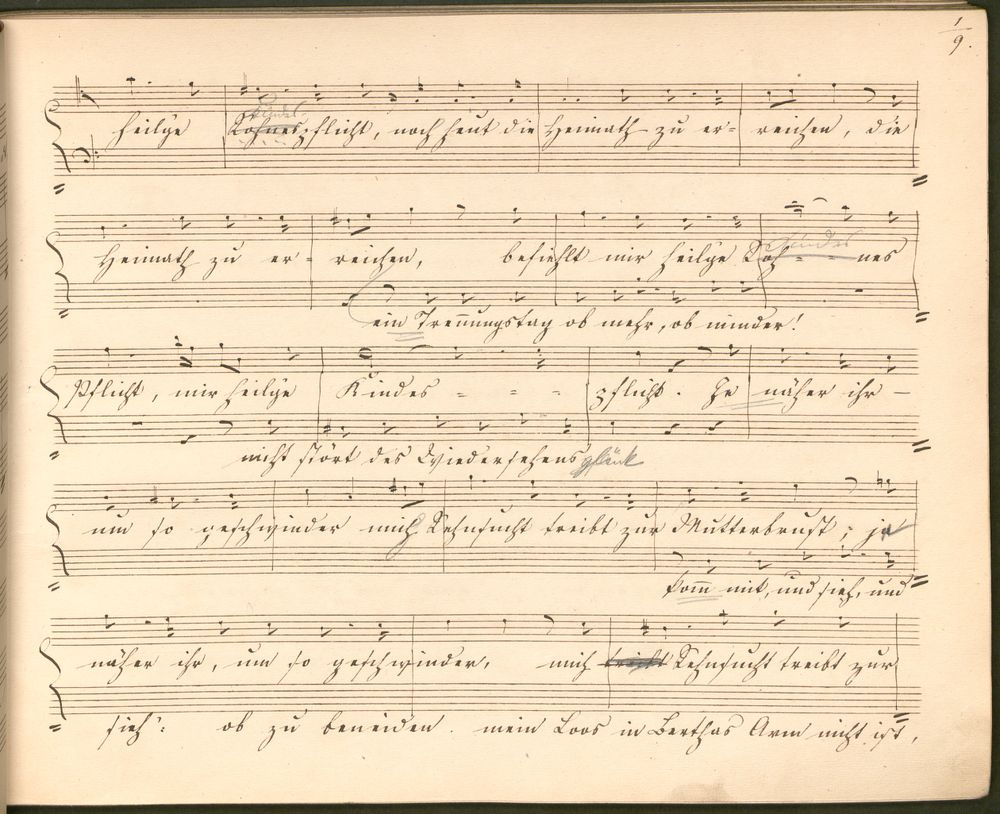 1/9.
Kindes
heilge Sohnespflicht, noch heut die Heimath zu er- reichen, die
Kindes
Heimath zu er- reichen, befiehlt mir heilge Soh - - nes
ein Trennungstag ob mehr, ob minder!
Pflicht, mir heilge Kindes - - - pflicht. Je näher ihr -
nicht stört des Wiedersehens glück
um so geschwinder mich Sehnsucht treibt zur Mutterbrust; ja
kom̄ mit, und sieh, und
näher ihr, um so geschwinder, mich treibt Sehnsucht treibt zur
sieh: ob zu beneiden. mein Loos in Berthas Arm nicht ist,